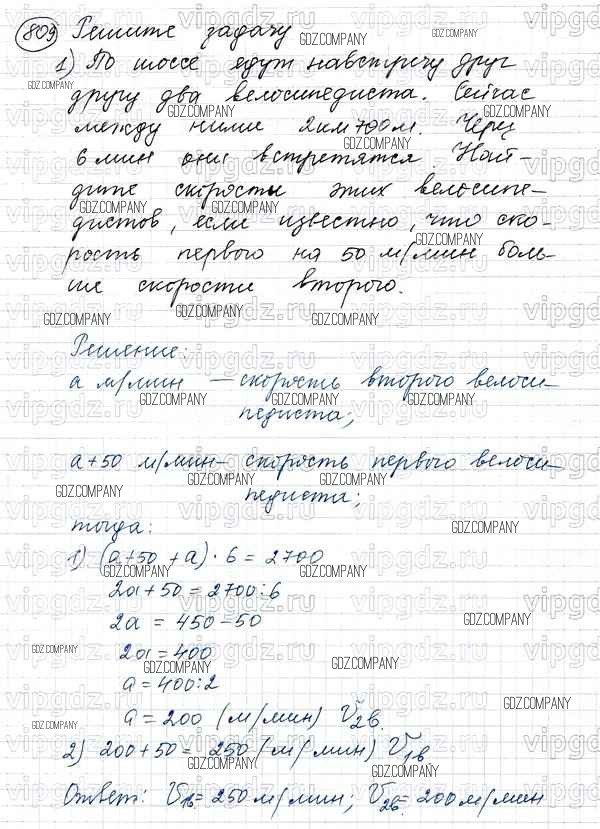 809 Решите задачу
1) По шоссе едут навстречу друг
другу два велосипедиста. Сейчас
между ними 2км 700м. Через
6 мин они встретятся. Най-
дите скорость этих велосипе-
дистов, если известно, что ско-
рость первого на 50 м/мин боль-
ше скорости второго.
Решение:
а м/мин — скорость второго велоси-
педиста;
а+50 м/мин — скорость первого велоси-
педиста;
тогда:
1) (а+50 +а) · 6 = 2700
2а+50 = 2700:6
2а = 450-50
2а = 400
а = 400:2
а = 200 (м/мин) V2в.
2) 200+50 = 250 (м/мин) V1в
Ответ: V1в = 250 м/мин; V2в. = 200 м/мин
vipgdz.ru
GDZ.COMPANY